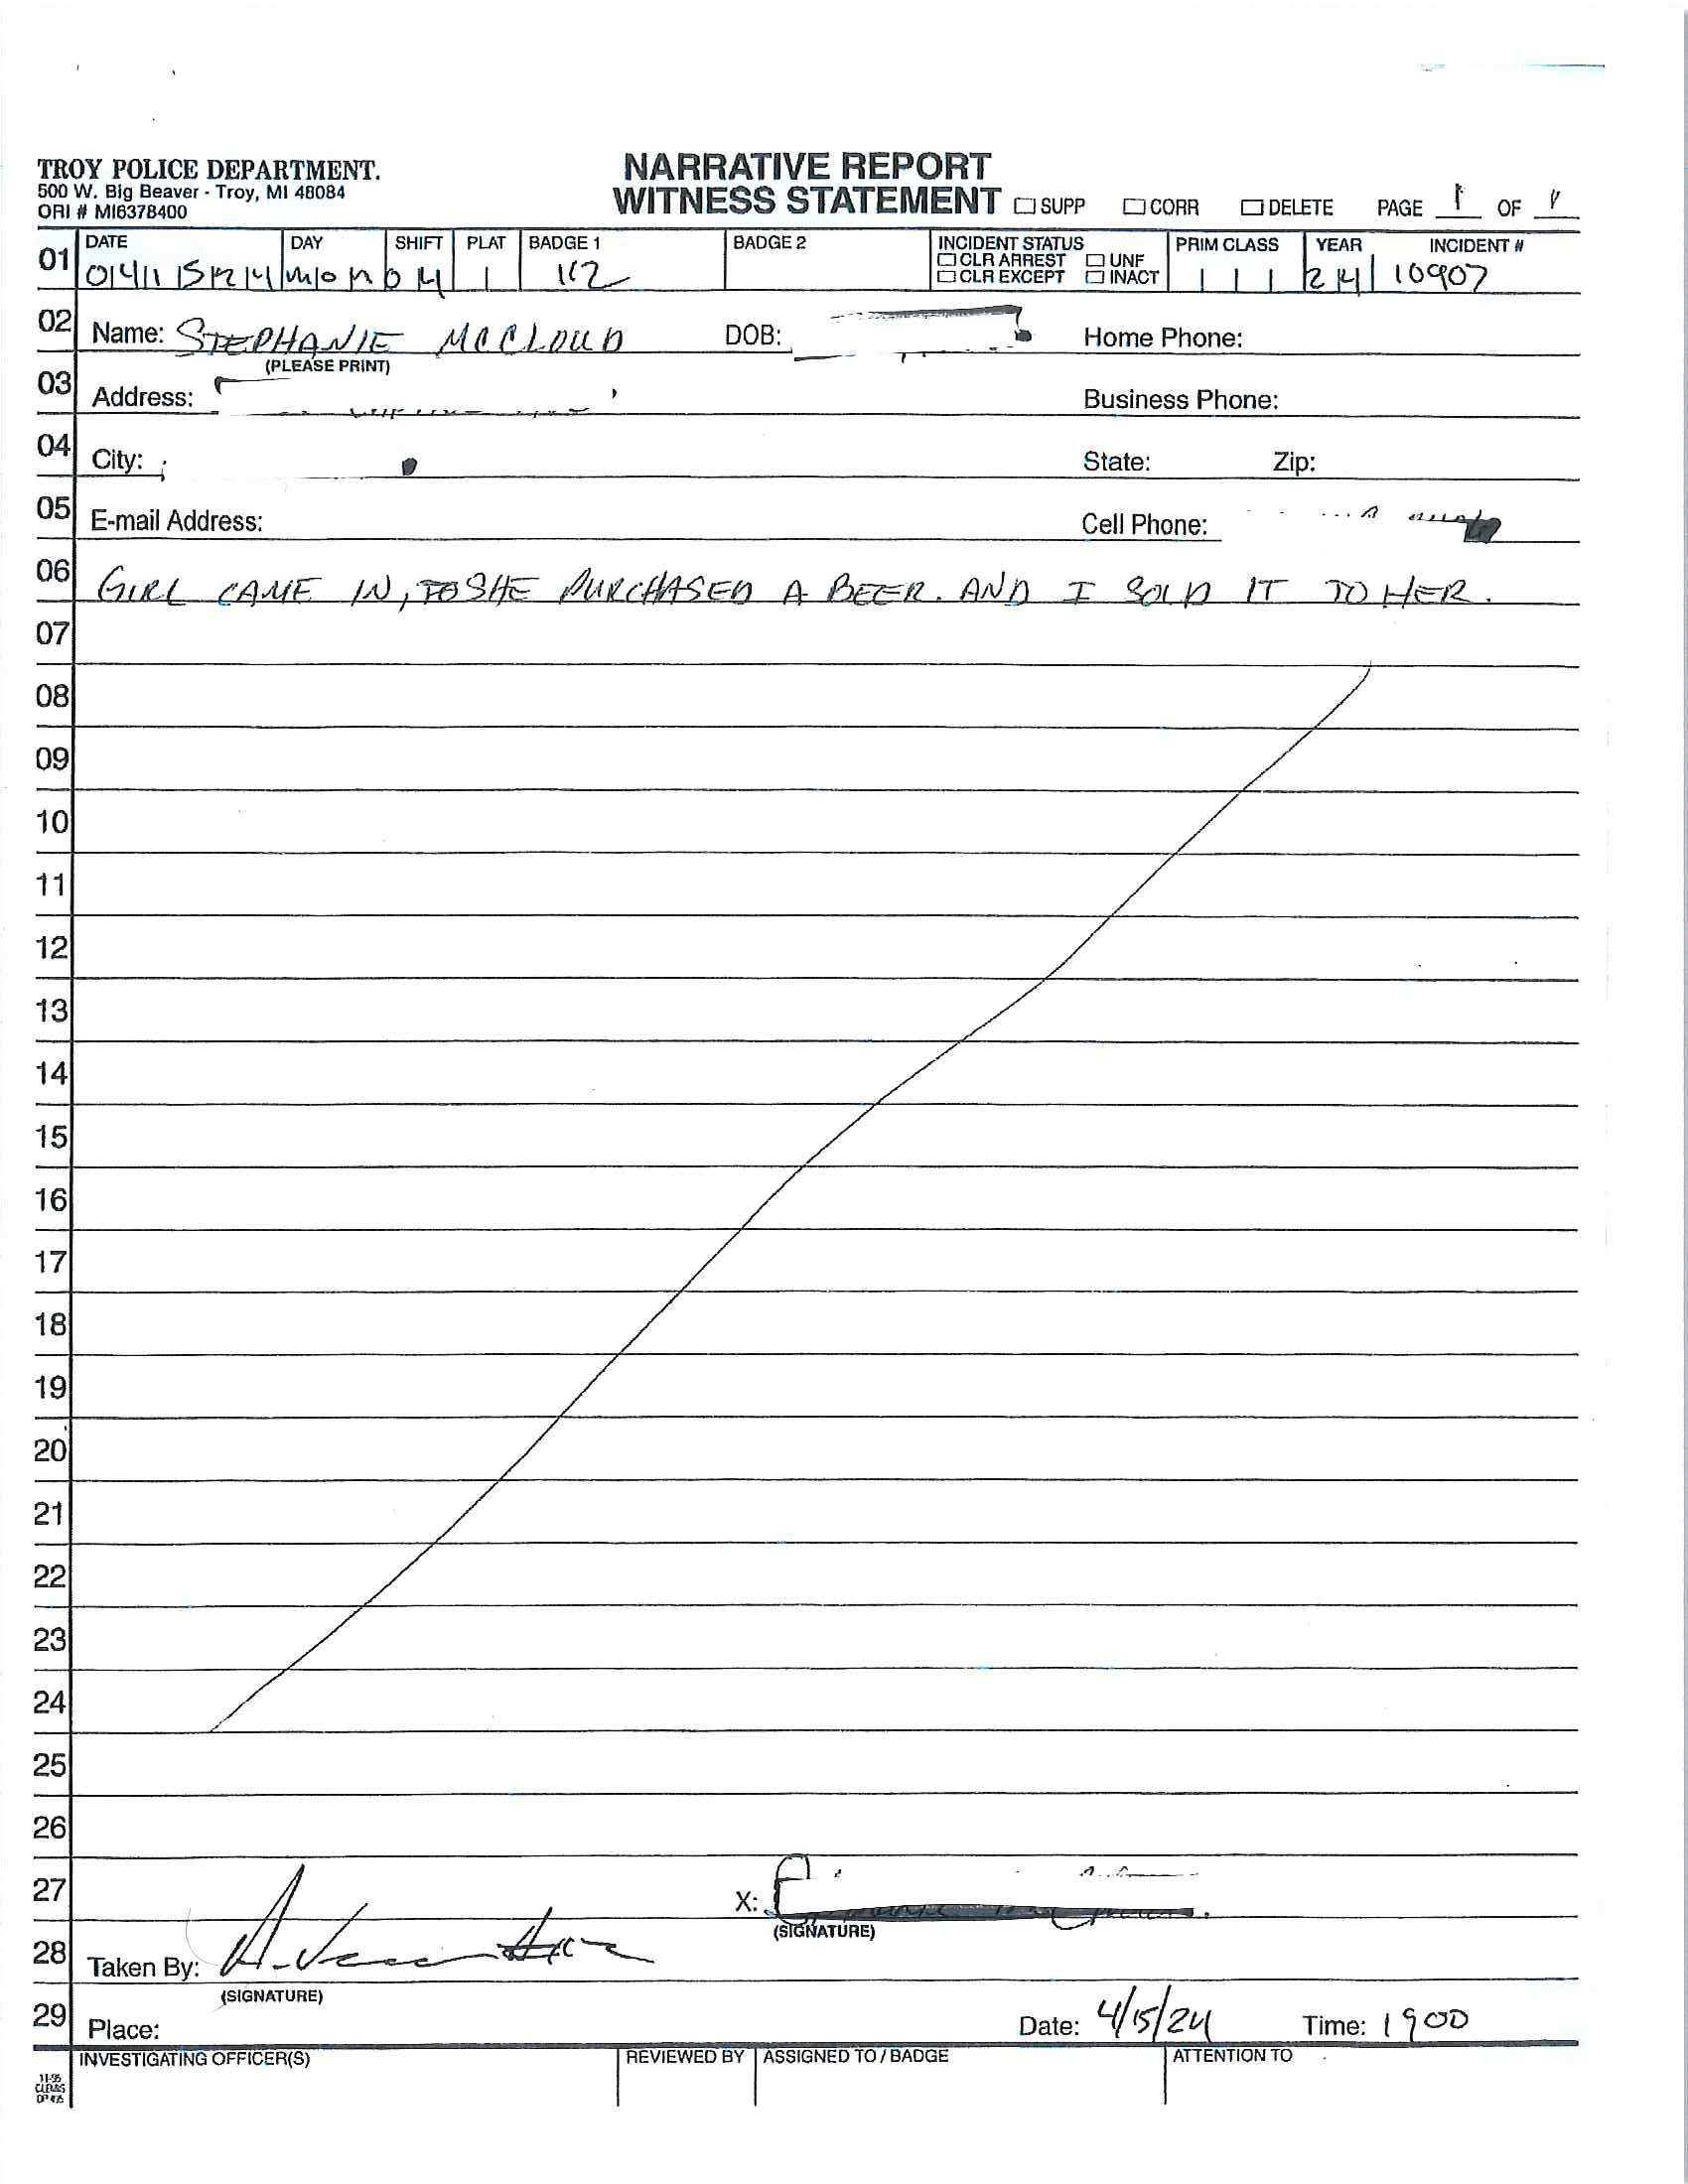 TROY POLICE DEPARTMENT.
500 W. Big Beaver - Troy, MI 48084
ORI # MI6378400
NARRATIVE REPORT
WITNESS STATEMENT ☐ SUPP ☐ CORR ☐ DELETE PAGE 1 OF 1
01 DATE DAY SHIFT PLAT BADGE 1 BADGE 2 INCIDENT STATUS PRIM CLASS YEAR INCIDENT #
☐ CLR ARREST ☐ UNF
☐ CLR EXCEPT ☐ INACT
04 15 24 mon 04 1 24 10907
02 Name: STEPHANIE MCCLOUD DOB: Home Phone:
(PLEASE PRINT)
03 Address: Business Phone:
04 City: State: Zip:
05 E-mail Address: Cell Phone:
06 GIRL CAME IN, SHE PURCHASED A BEER. AND I SOLD IT TO HER.
07
08
09
10
11
12
13
14
15
16
17
18
19
20
21
22
23
24
25
26
27 X:
(SIGNATURE)
28 Taken By:
(SIGNATURE)
29 Place: Date: 4/15/24 Time: 1900
INVESTIGATING OFFICER(S) REVIEWED BY ASSIGNED TO / BADGE ATTENTION TO
11-95
CLEMIS